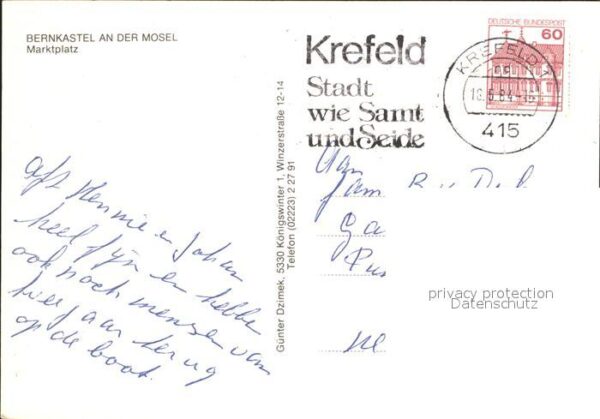 BERNKASTEL AN DER MOSEL
Marktplatz
Krefeld
Stadt
wie Samt
und Seide
KREFELD 1
18.6.84
415
DEUTSCHE BUNDESPOST
60
Günter Dzimek, 5330 Königswinter 1, Winzerstraße 12-14
Telefon (02223) 2 27 91
Hennie en Johan
heel fijn en hebben
ook noch mensen van
hier jaar terug
op de boot.
Aan
fam R
Ga
privacy protection
Datenschutz